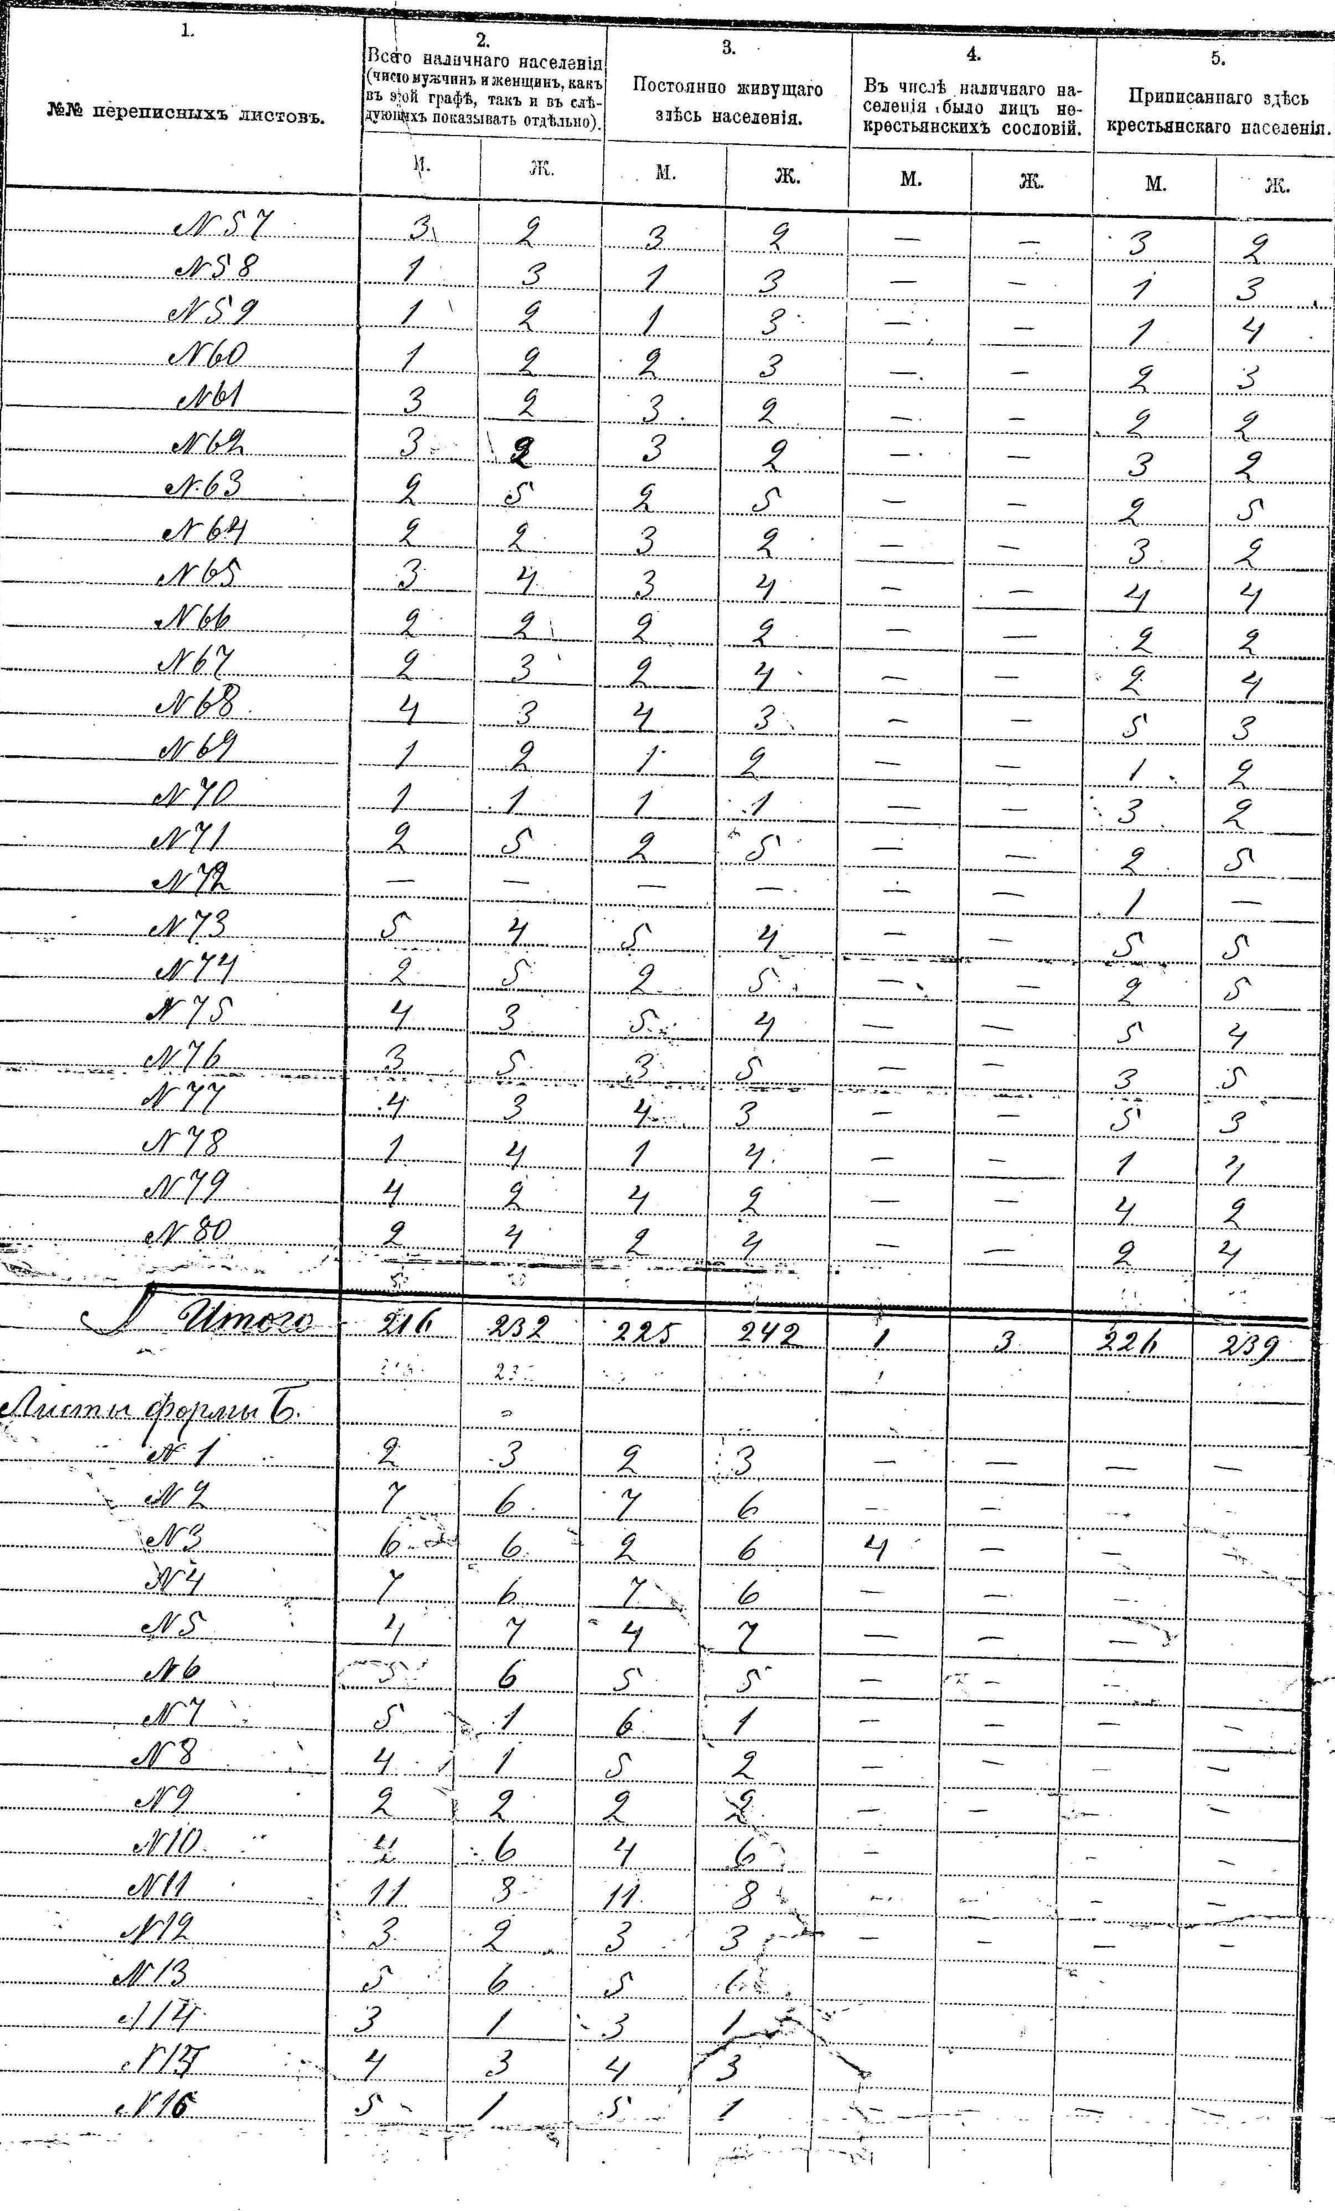 1. 2. 3. 4. 5.
№№ переписныхъ листовъ.
Всего наличнаго населенія
(число мужчинъ и женщинъ, какъ
въ этой графѣ, такъ и въ слѣ-
дующихъ показывать отдѣльно).
Постоянно живущаго
здѣсь населенія.
Въ числѣ наличнаго на-
селенія было лицъ не-
крестьянскихъ сословій.
Приписаннаго здѣсь
крестьянскаго населенія.
М. Ж. М. Ж. М. Ж. М. Ж.
N 57 3 2 3 2 — — 3 2
N 58 1 3 1 3 — — 1 3
N 59 1 2 1 3 — — 1 4
N 60 1 2 2 3 — — 2 3
N 61 3 2 3 2 — — 2 2
N 62 3 2 3 2 — — 3 2
N 63 2 5 2 5 — — 2 5
N 64 2 2 3 2 — — 3 2
N 65 3 4 3 4 — — 4 4
N 66 2 2 2 2 — — 2 2
N 67 2 3 2 4 — — 2 4
N 68 4 3 4 3 — — 5 3
N 69 1 2 1 2 — — 1 2
N 70 1 1 1 1 — — 3 2
N 71 2 5 2 5 — — 2 5
N 72 — — — — — — 1 —
N 73 5 4 5 4 — — 5 5
N 74 2 5 2 5 — — 2 5
N 75 4 3 5 4 — — 5 4
N 76 3 5 3 5 — — 3 5
N 77 4 3 4 3 — — 5 3
N 78 1 4 1 4 — — 1 4
N 79 4 2 4 2 — — 4 2
N 80 2 4 2 4 — — 2 4
Итого 216 232 225 242 1 3 226 239
Листы формы Б.
N 1 2 3 2 3 — — — —
N 2 7 6 7 6 — —
N 3 6 6 2 6 4 — — —
N 4 7 6 7 6 — — —
N 5 4 7 4 7 — — —
N 6 5 6 5 5 — — —
N 7 5 1 6 1 — — — —
N 8 4 1 5 2 — — — —
N 9 2 2 2 2 — — — —
N 10 4 6 4 6 — — —
N 11 11 8 11 8 — — — —
N 12 3 2 3 3 — — — —
N 13 5 6 5
N 14 3 1 3 1
N 15 4 3 4 3
N 16 5 1 5 1 — — — —